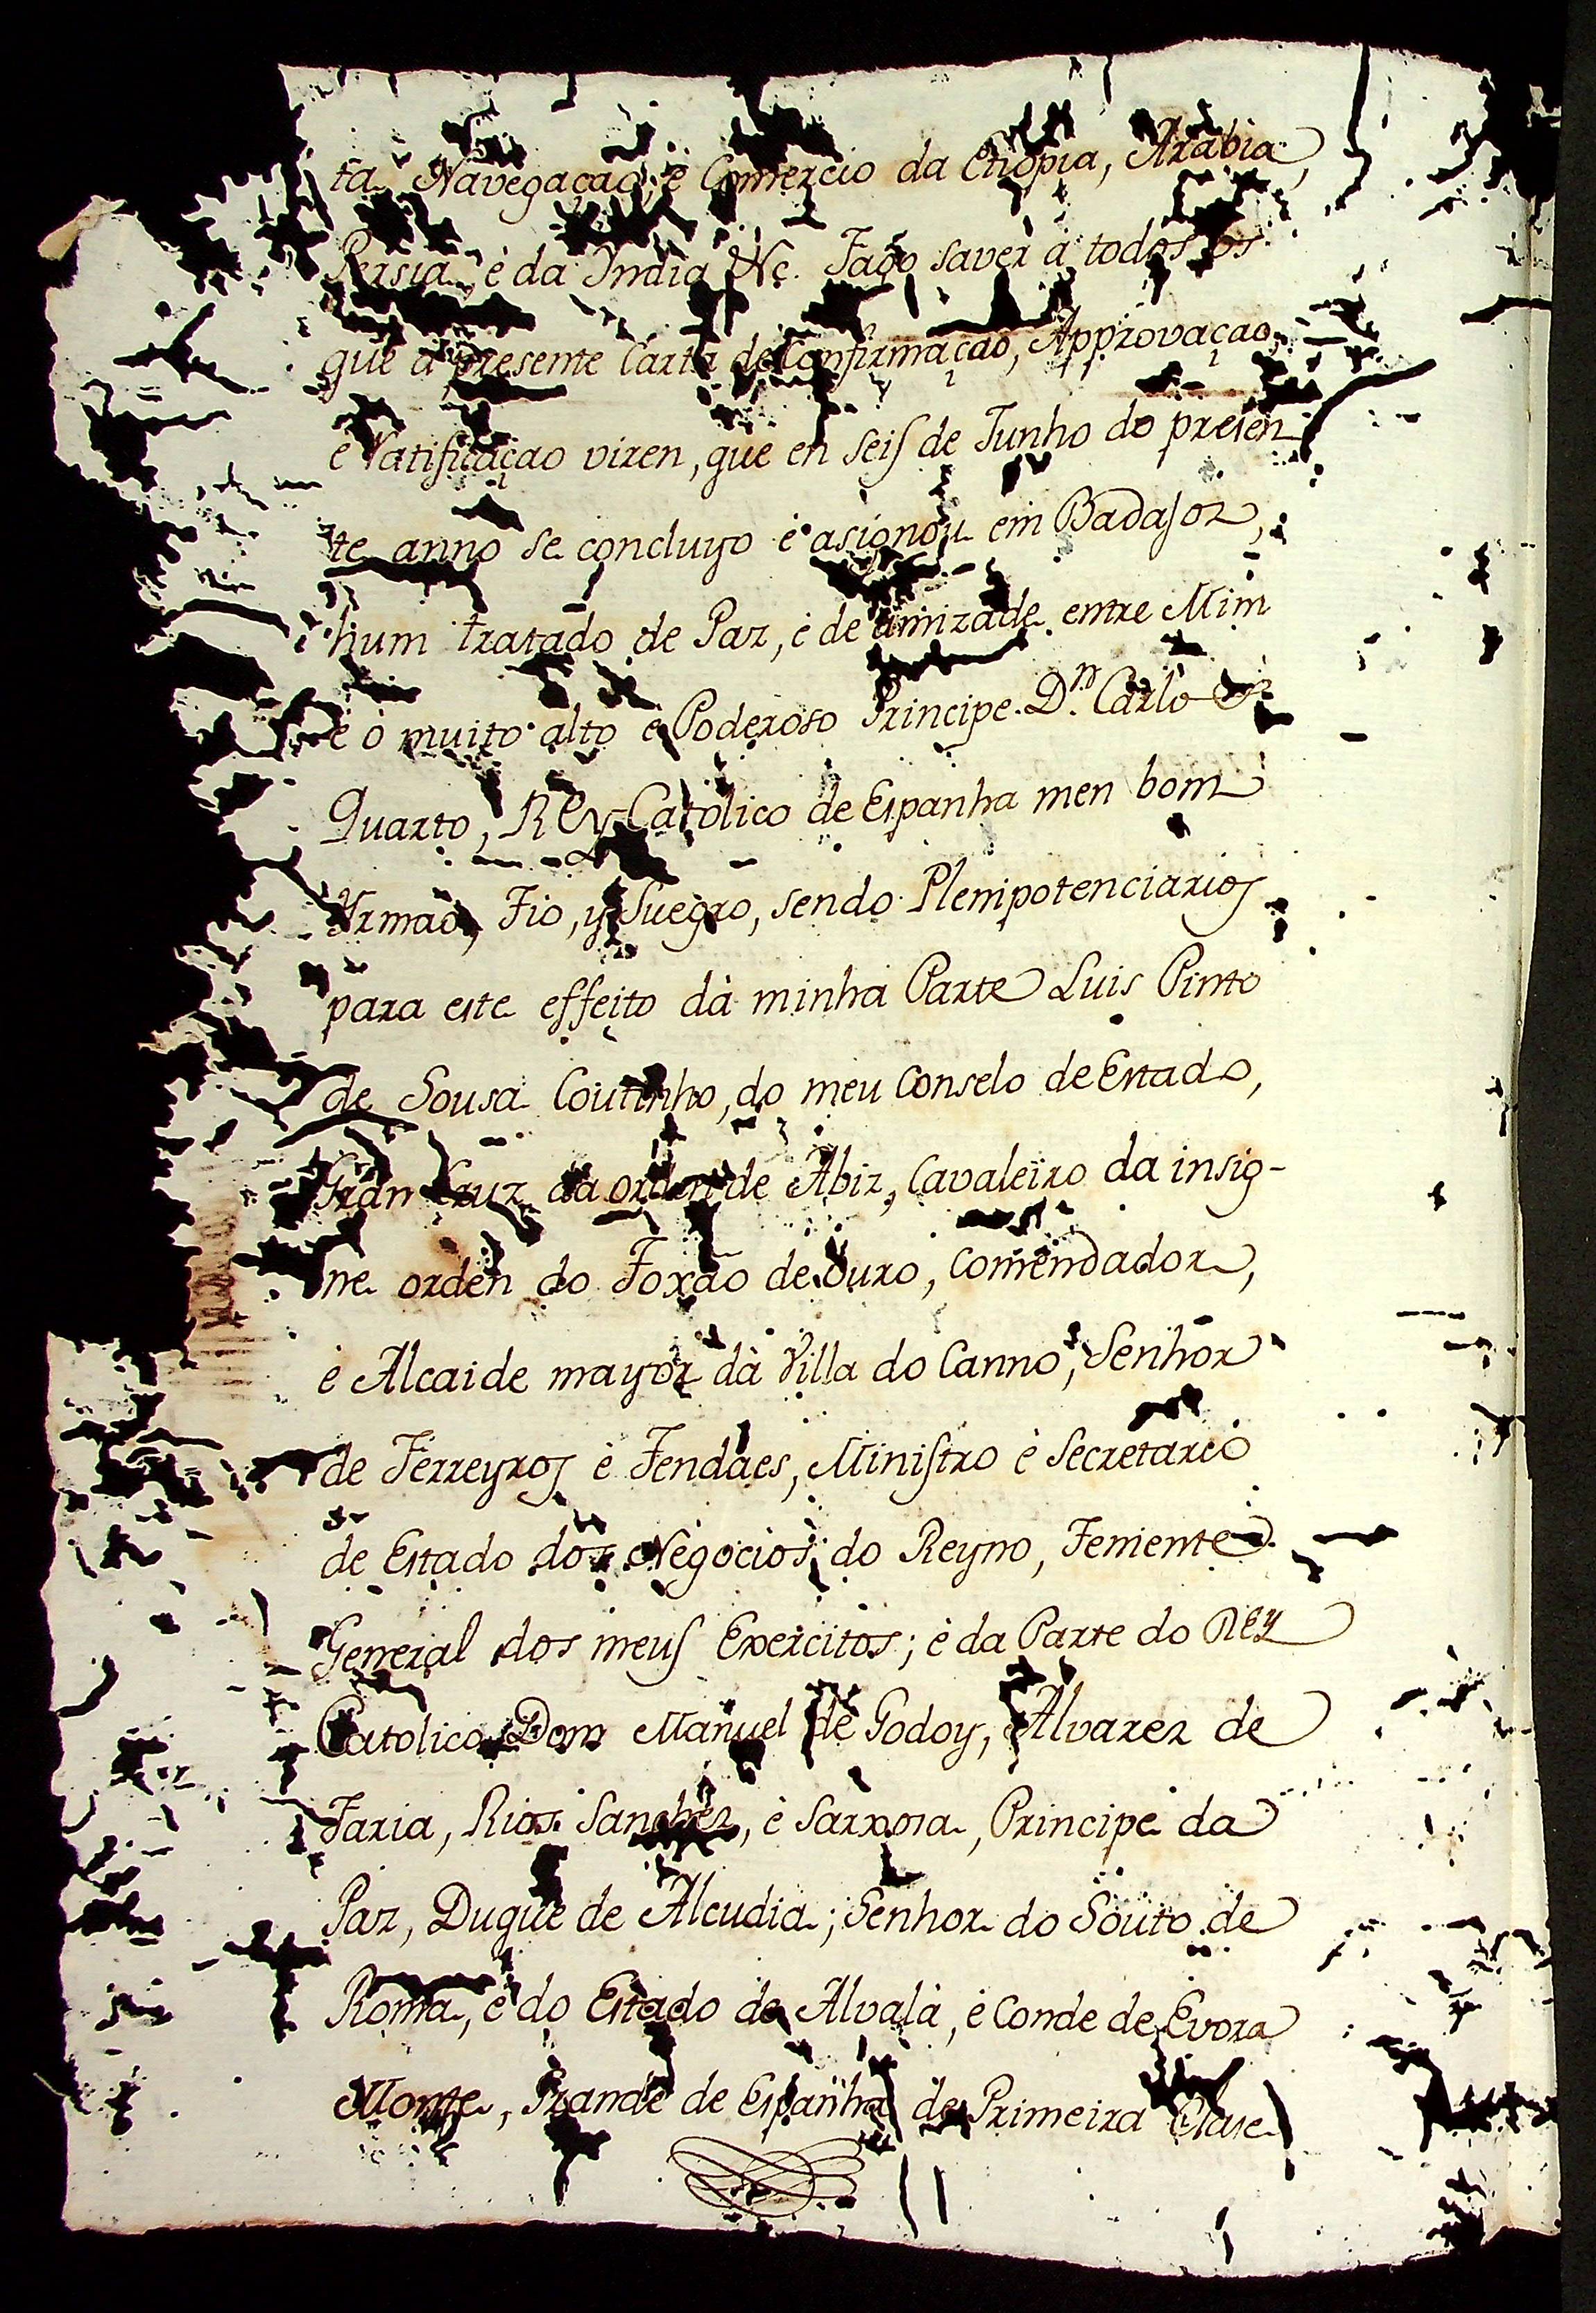 ta Navegaçao, è Comercio da Etiopia, Arabia,
Persia, è da Yndia &c. Faço saver à todos os
que à presente Carta de Confirmaçao, Approvaçao,
è ratificaçao viren, que en seis de Junho do presen
te anno se concluyo è asignou em Badajoz,
hum tratado de Paz, è de amizade entre Mim
è ò muito alto è Poderoso Principe D.n Carlo
Quarto, Rey Catolico de Espanha men bom
Yrmaò, Fio, y Suegro, sendo Plenipotenciarios
para este effeito dà minha Parte Luis Pinto
de Sousa Coutinho, do meu Conselo de Estado,
Gran Cruz da orden de Abiz, Cavaleiro da insig-
ne orden do Toxão de Ouro, Comendador,
è Alcaide mayor dà Villa do Canno, Senhor
de Ferreyros è Tendaes, Ministro è Secretario
de Estado dos Negocios do Reyno, Teniente
General dos meus Exercitos; è da Parte do Rey
Catolico Dom Manuel de Godoy, Alvarez de
Faria, Rios Sanchez, è Sarxosa, Principe da
Paz, Duque de Alcudia; Senhor do Souto de
Roma, è do Estado de Alvalà, è Conde de Evora
Monte, Grande de Espanha de Primeira Clase